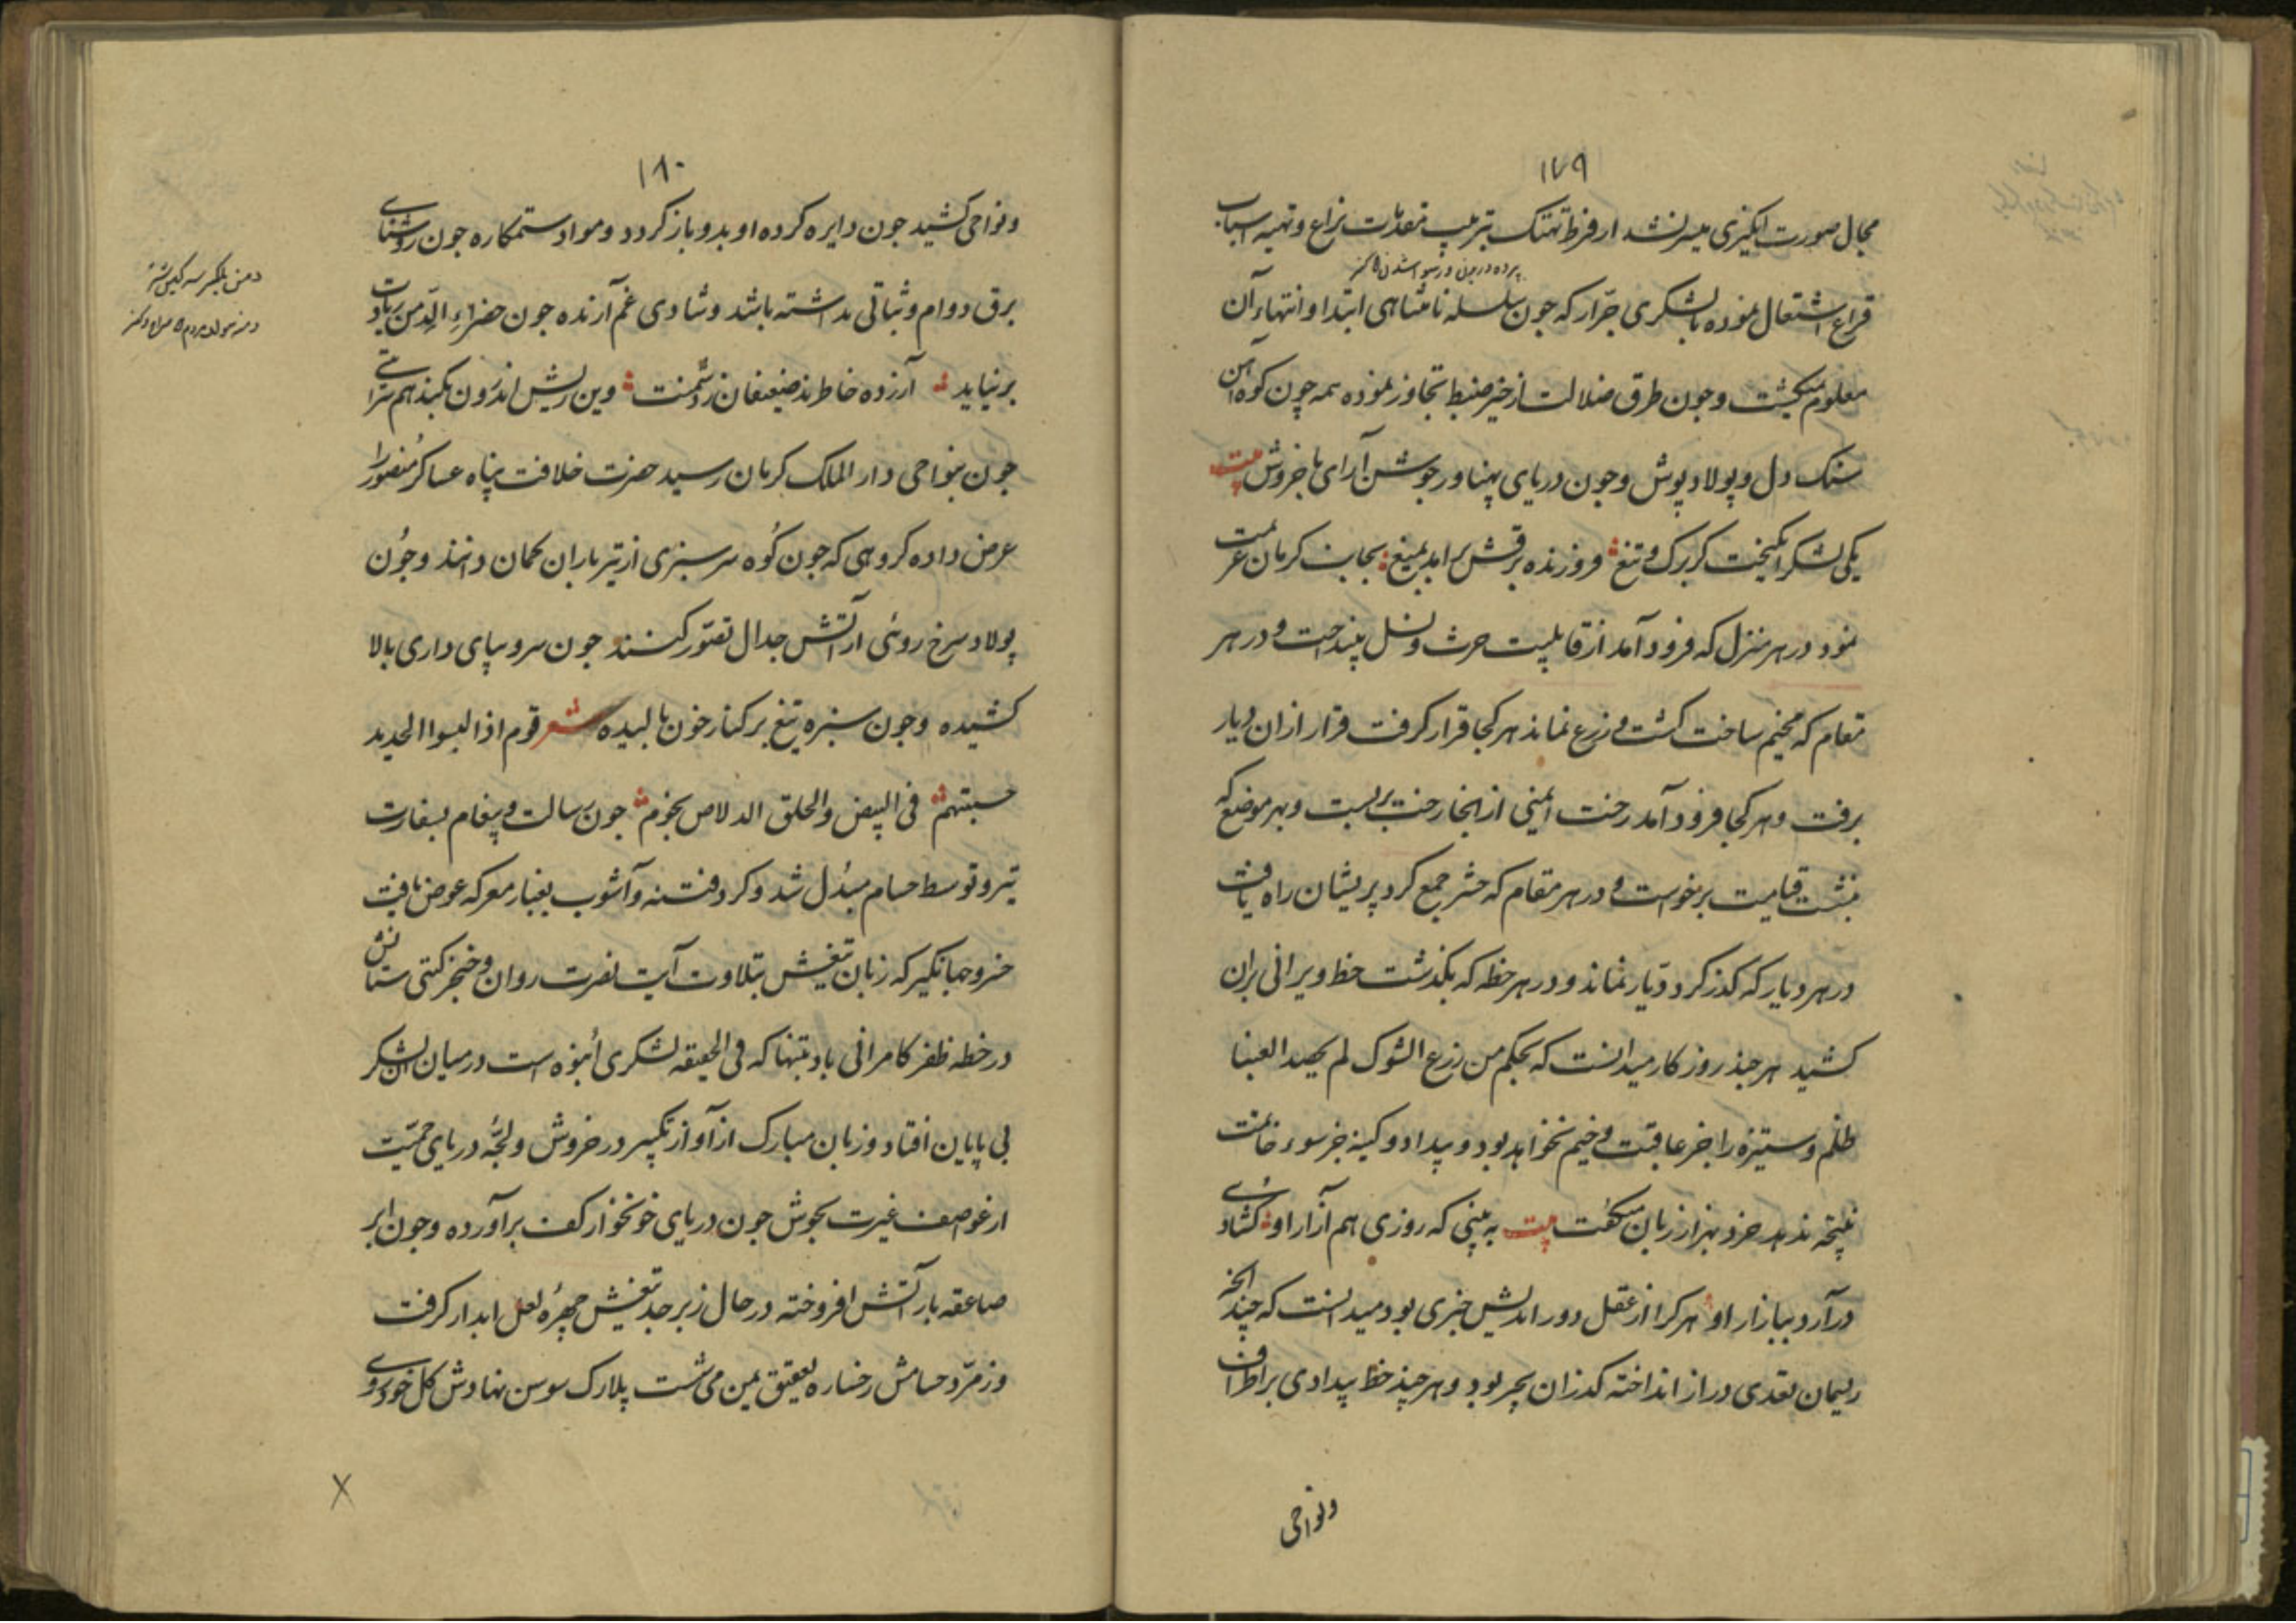 ١٧٩
مجال صورت انگیزی میسر نشد از فرط تهتک بترتیب مقدمات نزاع و تهیه اسباب
قراع اشتغال نموده با لشکری جرّار که چون سلسله نامتناهی ابتدا و انتهاء آن
معلوم نمیکشت و جون طرق ضلالت از حیز ضبط تجاوز نموده همه چون کوه آهن
سنک دل و پولاد پوش و جون دریای پهناور جوشن آرای با خروش بیت
یکی لشکر انکیخت کز ترک و تیغ فروزنده برقش بر امد بمیغ بجانب کرمان عزیمت
نمود در هر منزل که فرود آمد از قابلیت حرث و نسل بینداخت و در هر
مقام که مخیم ساخت کشت و زرع نماند هر کجا قرار کرفت قرار ازان دیار
برفت و هر کجا فرود آمد رخت ایمنی از انجا رخت بر بست و بهر موضع که
بنشست قیامت برخواست و در هر مقام که حشر جمع کرد پریشان راه یافت
در هر دیار که کذر کرد دیّار نماند و در هر خطه که بکذشت خط ویرانی بران
کشید هر چند روزکار میدانست که بحکم من زرع الشوک لم یحصد العنبا
ظلم و ستیزه را جز عاقبت وخیم نخواهد بود و بیداد و کینه جز سوء خاتمت
نتیجه ندهد خرد بهزار زبان میکفت بیت به بینی که روزی هم آزار او کشادی
در آرد ببازار او هر کرا از عقل دور اندیش خبری بود میدانست که چند انچه
ریسمان تعدی دراز انداخته کذر ان بچنبر بود و هر چند خط بیدادی بر اطراف
و نواحی
١٨٠
و نواحی کشید جون دایره کرده او بدو باز کردد و مواد ستمکاره جون روشنای
برق دوام و ثباتی نداشته باشد و شادی غم آرنده جون خضراء الدّمن زیادت
بر نیاید آزرده خاطر ند ضعیفان ز دشمنت وین ریش اندرون بکند هم سرایتی
جون بنواحی دار الملک کرمان رسید حضرت خلافت پناه عساکر منصور را
عرض داده کروهی که جون کوه سرسبزی از تیر باران کمان دانند و جون
پولاد سرخ روئی از آتش جدال تصوّر کنند جون سرو بپای داری بالا
کشیده و جون سبزه تیغ بر کنار خون بالیده شعر قوم اذا لبسوا الحدید
حسبتهم فی البیض و الحلق الدلاص نجوم جون رسالت و پیغام بسفارت
تیر و توسط حسام مبدّل شد و کرد فتنه و آشوب بغبار معرکه عوض یافت
خسرو جهانکیر که زبان تیغش بتلاوت آیت نصرت روان و خنجر کیتی ستانش
در خطه ظفر کامرانی باد بتنها که فی الحقیقه لشکری انبوه است در میان آن لشکر
بی پایان افتاد و زبان مبارک از آواز تکبیر در خروش و لجّه دریای حمیّت
از عواصف غیرت بجوش جون دریای خونخوار کف برآورده و جون ابر
صاعقه بار آتش افروخته در حال زبرجد تیغش چهره لعل ابدار کرفت
و زمرّد حسامش رخساره بعقیق یمن می شست پلارک سوسن نهادش کل خودروی